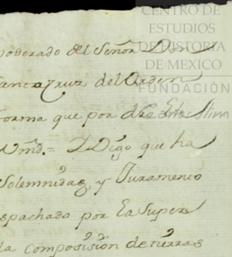 CENTRO DE
ESTUDIOS
DE HISTORIA
DE MEXICO
FUNDACIÓN
poderado del Señor D.
Santa Cruz del Orden
forma que por dho
Vmd.= Digo que ha
Solemnidas, y Juramento
espachado por la Super
la composision de tierras